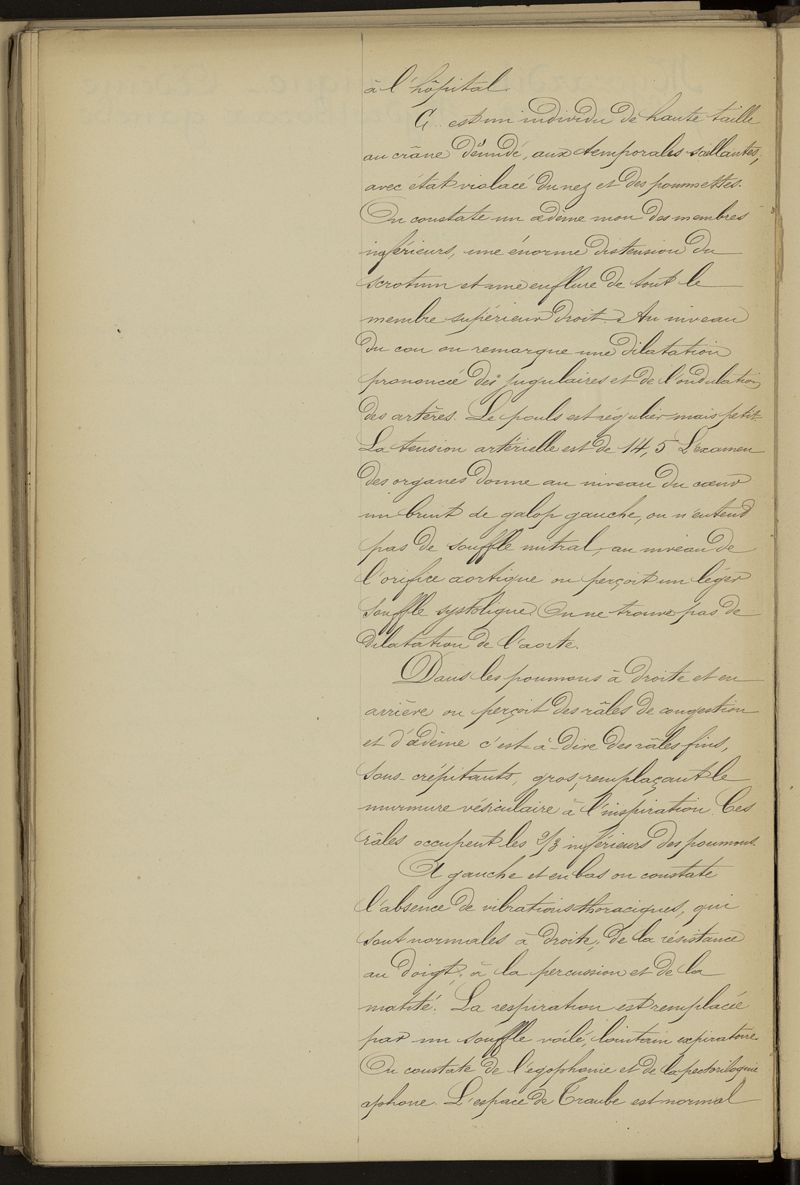 à l'hôpital.
G.. est un individu de haute taille
au crâne dénudé, aux temporales saillantes,
avec état violacé du nez et des pommettes.
On constate un œdème mou des membres
inférieurs, une énorme distension du
scrotum et une enflure de tout le
membre supérieur droit. Au niveau
du cou on remarque une dilatation
prononcée des jugulaires et de l'ondulation
des artères. Le pouls est régulier mais petit.
La tension artérielle est de 14,5 L'examen
des organes donne au niveau du cœur
un bruit de galop gauche, on n'entend
pas de souffle mitral, au niveau de
l'orifice aortique on perçoit un léger
souffle systolique. On ne trouve pas de
dilatation de l'aorte.
Dans les poumons à droite et en
arrière on perçoit des râles de congestion
et d'œdème c'est-à-dire des râles fins,
sous-crépitants, gros, remplaçant le
murmure vésiculaire à l'inspiration. Ces
râles occupent les 2/3 inférieurs des poumons.
A gauche et en bas on constate
l'absence de vibrations thoraciques, qui
sont normales à droite, de la résistance
au doigt, à la percussion et de la
matité. La respiration est remplacée
par un souffle voilé, lointain expiratoire.
On constate de l'égophonie et de la pectoriloquie
aphone. L'espace de Traube est normal